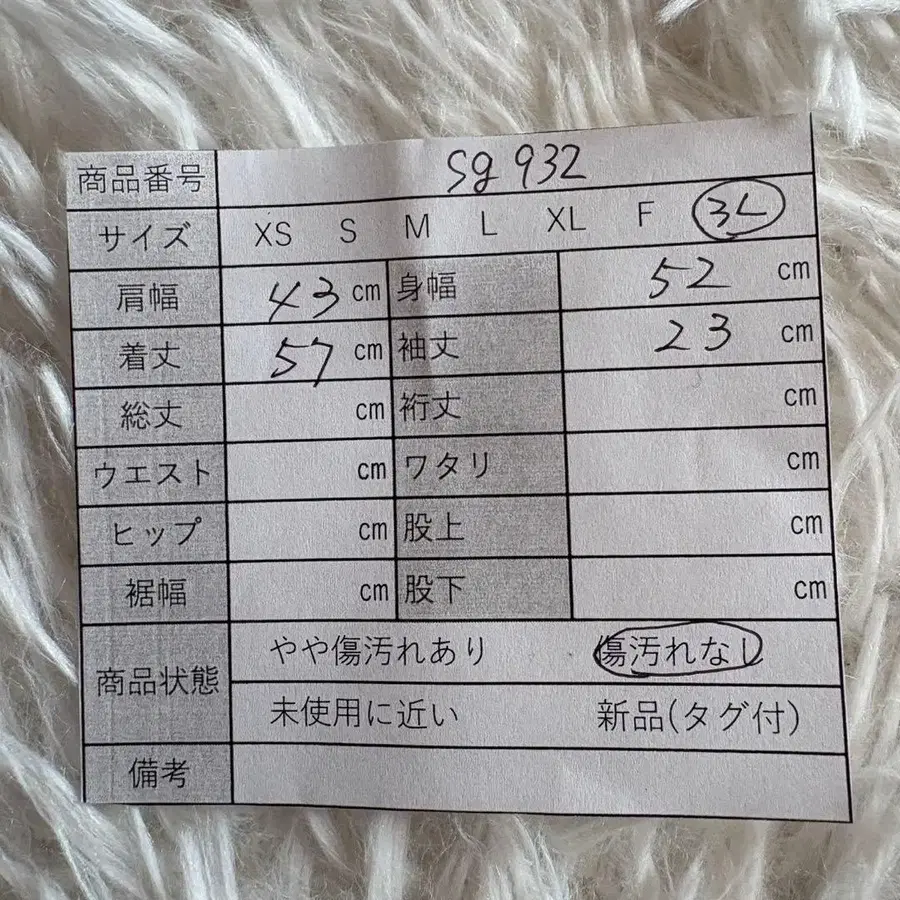 商品番号 sg 932
サイズ XS S M L XL F 3L
肩幅 43 cm 身幅 52 cm
着丈 57 cm 袖丈 23 cm
総丈 cm 裄丈 cm
ウエスト cm ワタリ cm
ヒップ cm 股上 cm
裾幅 cm 股下 cm
商品状態 やや傷汚れあり 傷汚れなし
未使用に近い 新品(タグ付)
備考